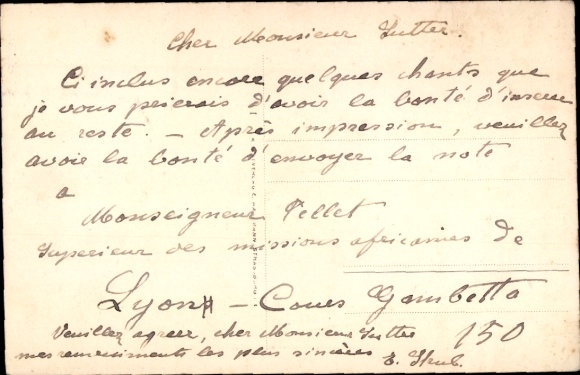 Cher Monsieur Sutter.
Ci inclus encore quelques chants que
je vous prierais d'avoir la bonté d'inserer
au reste. - Après impression, veuillez
avoir la bonté d'envoyer la note
a
Monseigneur Pellet
Superieur des missions africaines de
Lyon - Cours Gambetta
150
Veuillez agreer, cher Monsieur Sutter
mes remerciments les plus sincères
E.